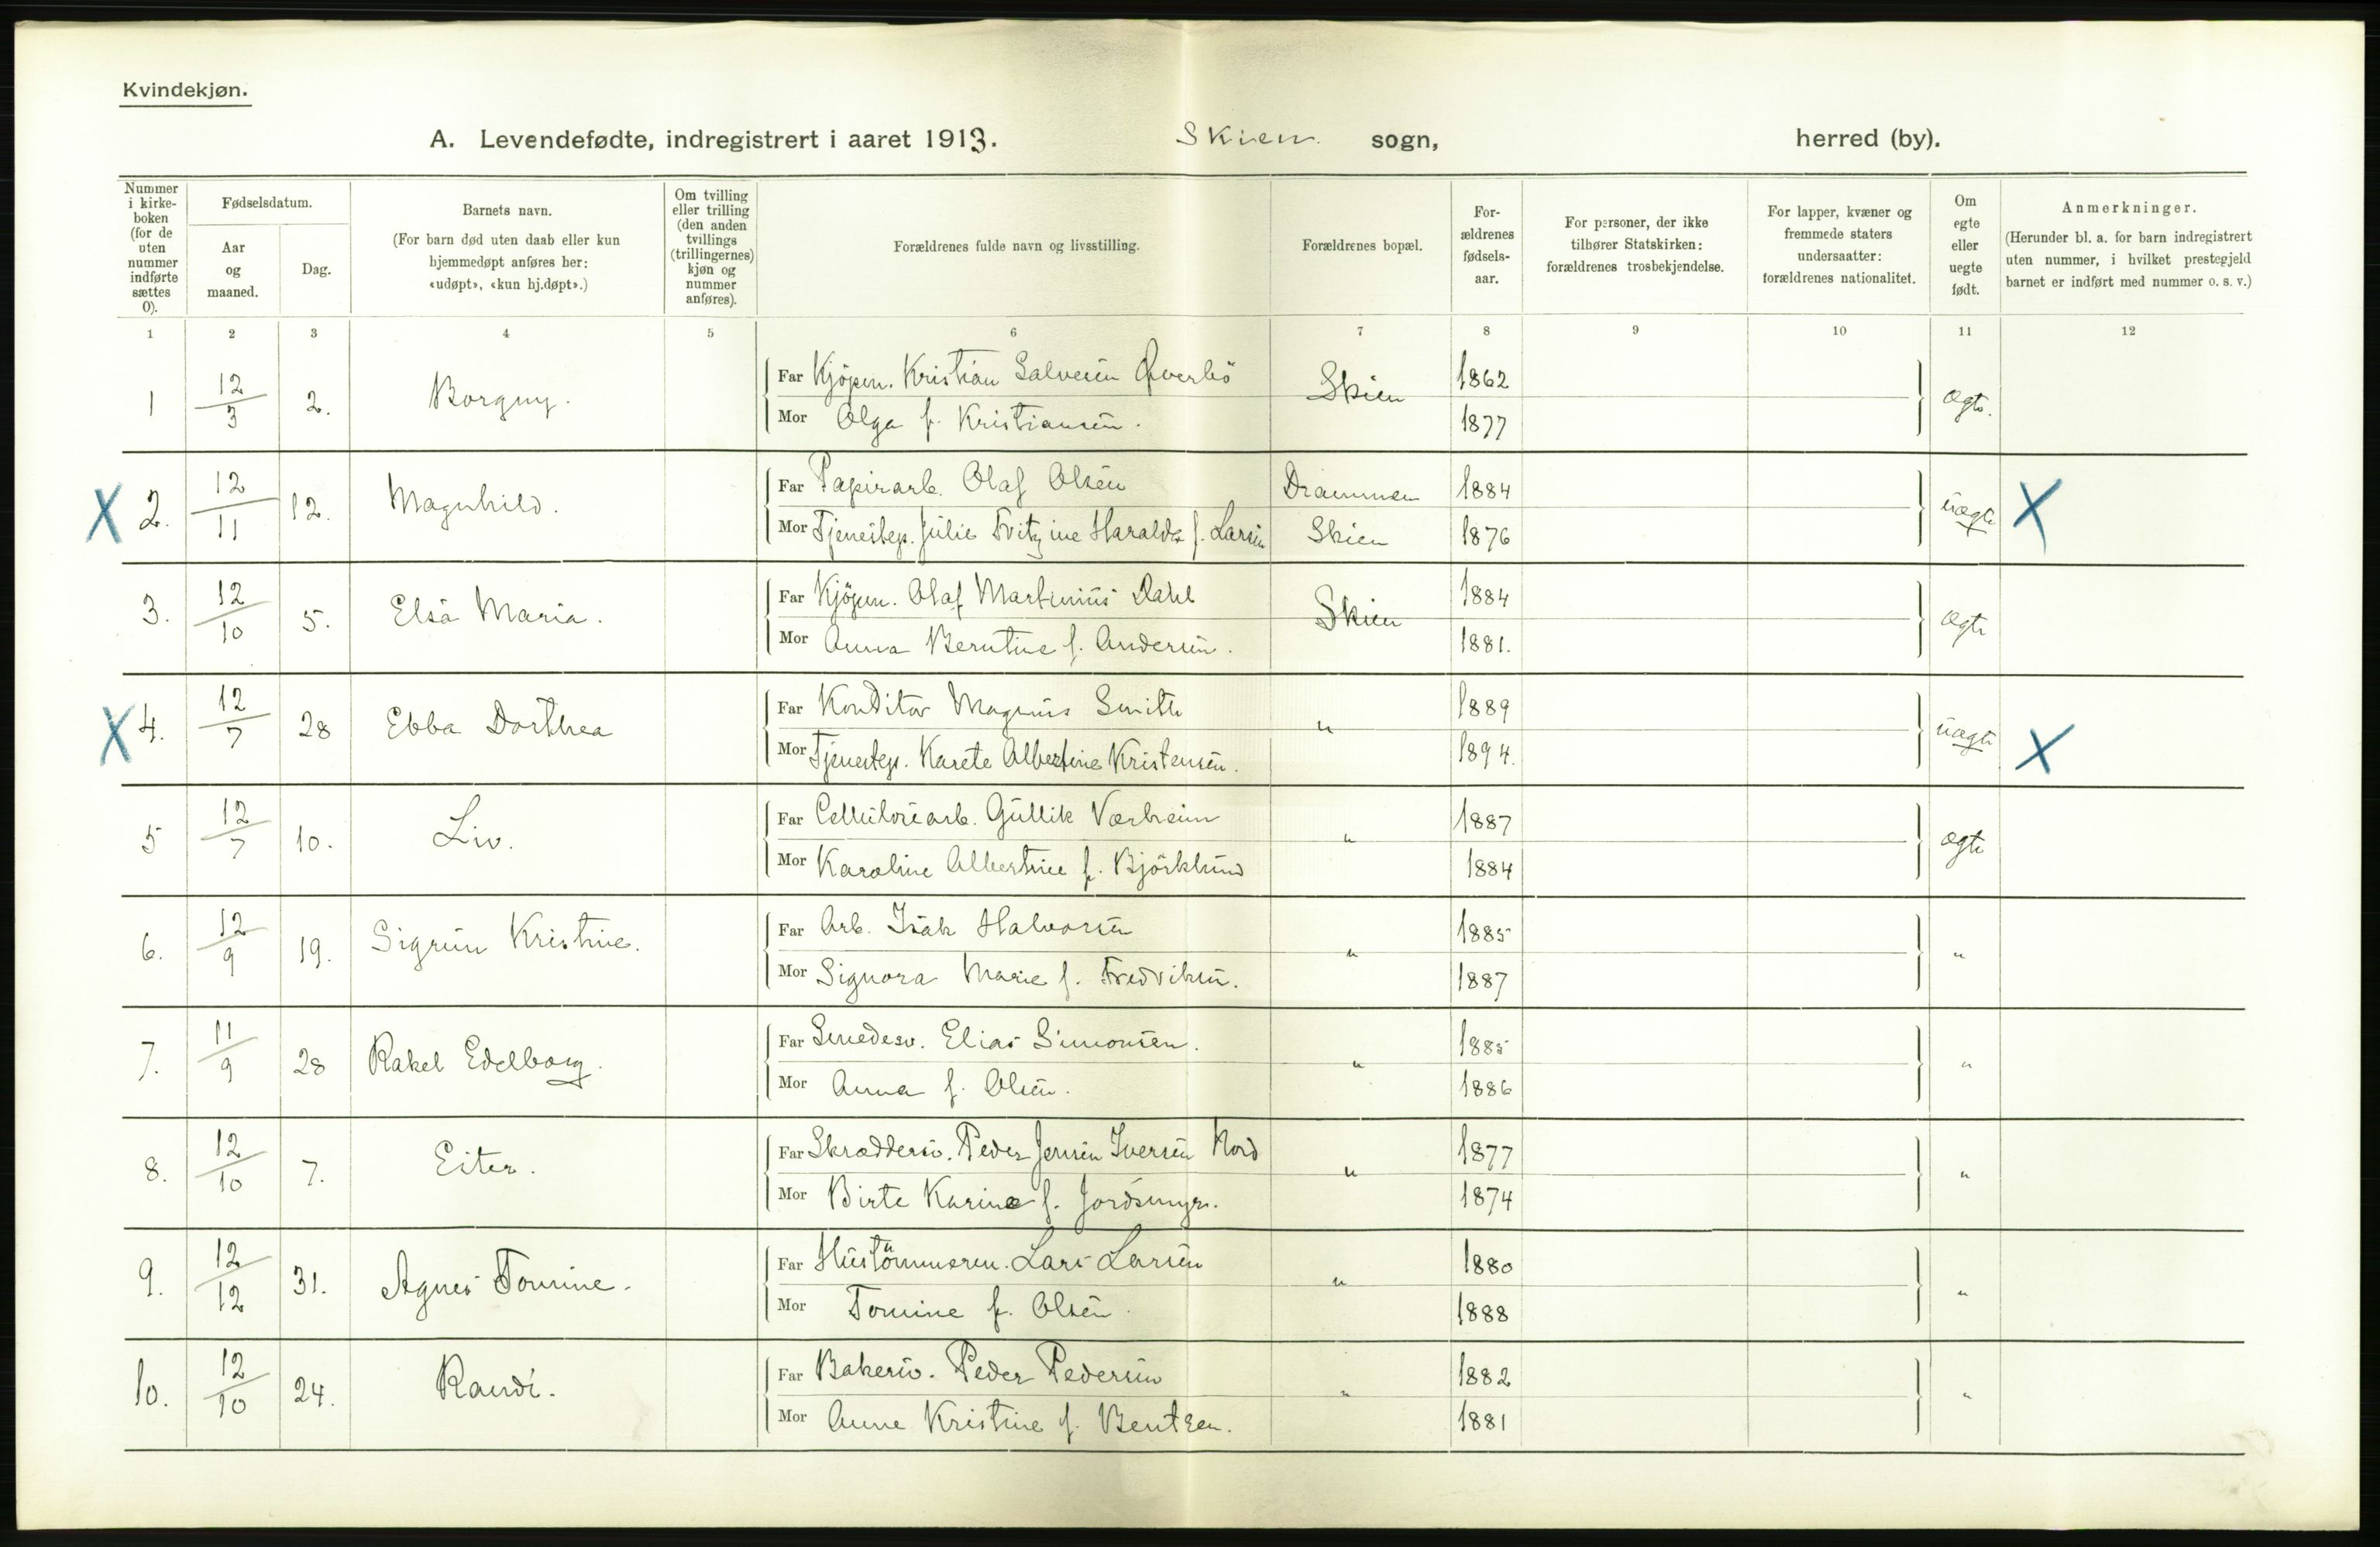 Kvindekjøn.
A. Levendefødte, indregistrert i aaret 1913. Skien sogn, herred (by).
Nummer i kirke-boken (for de uten nummer indførte sættes 0).
Fødselsdatum.
Aar og maaned.
Dag.
Barnets navn.
(For barn død uten daab eller kun hjemmedøpt anføres her: «udøpt», «kun hj.døpt».)
Om tvilling eller trilling (den anden tvillings (trillingernes) kjøn og nummer anføres).
Forældrenes fulde navn og livsstilling.
Forældrenes bopæl.
For-ældrenes fødsels-aar.
For personer, der ikke tilhører Statskirken: forældrenes trosbekjendelse.
For lapper, kvæner og fremmede staters undersaatter: forældrenes nationalitet.
Om egte eller uegte født.
Anmerkninger.
(Herunder bl. a. for barn indregistrert uten nummer, i hvilket prestegjeld barnet er indført med nummer o. s. v.)
1 2 3 4 5 6 7 8 9 10 11 12
1 12/3 2. Borgny. Far Kjöpm. Kristian Salvesen Øverbö Skien 1862 ægte.
Mor Olga f. Kristiansen. 1877
X 2. 12/11 12. Magnhild. Far Papirarb. Olaf Olsen Drammen 1884 uægte X
Mor Tjenestep. Julie Fritzine Haralda f. Larsen Skien 1876
3. 12/10 5. Elsa Maria. Far Kjöpm. Olaf Martinius Dahl Skien 1884 ægte
Mor Anna Berntine f. Andersen. 1881.
X 4. 12/7 28 Ebba Dorthea Far Konditor Magnus Smith " 1889 uægte X
Mor Tjenestep. Karete Albertine Kristensen. 1894.
5 12/7 10. Liv. Far Cellulosearb. Gullik Værheim " 1887 ægte
Mor Karoline Albertine f. Björklund 1884
6. 12/9 19. Sigrun Kristine. Far Arb. Isak Halvorsen " 1885 "
Mor Signora Marie f. Fredriksen. 1887
7. 11/9 28 Rakel Edelborg. Far Smedesv. Elias Simonsen. " 1885 "
Mor Anna f. Olsen. 1886
8. 12/10 7. Eiter. Far Skræddersv. Peder Jensen Iversen Nord " 1877 "
Mor Birte Karine f. Jordsmyr. 1874
9. 12/12 31. Agnes Tomine. Far Hustömmerm. Lars Larsen " 1880 "
Mor Tomine f. Olsen. 1888
10. 12/10 24. Randi. Far Bakersv. Peder Pedersen " 1882 "
Mor Anne Kristine f. Bentzen. 1881